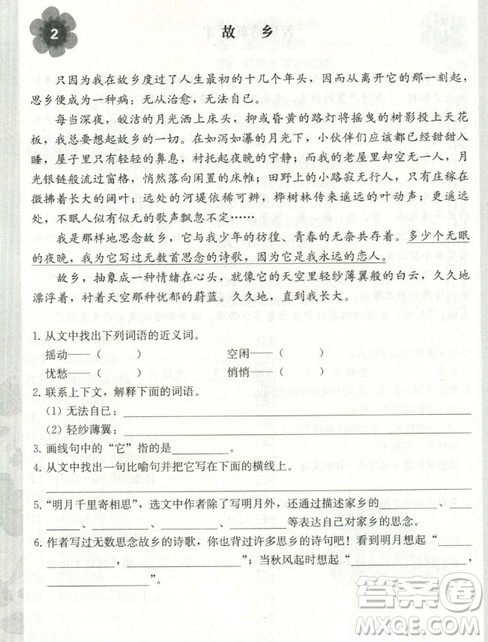 2
故 乡
只因为我在故乡度过了人生最初的十几个年头，因而从我离开她的那一刻起，
思乡便成为一种病；无从治愈，无法自已。
每当深夜，皎洁的月光洒上床头，抑或昏黄的路灯将摇曳的树影投上天花
板，我总要想起故乡的一切。在如泻如瀑的月光下，小伙伴们应该都已甜甜入
睡，屋子里只有轻轻的鼻息，房后有晚花的宁静；而我的老屋里却无人安睡，
月光银链般流淌，悄然落向闲置的床帷；田野的小路寂无行人，只有庄稼在
微拂着长大的阔叶；远处的河堤依稀可辨，桦树林传来遥远的叶动声，
不眠人似有似无的歌声飘忽不定……
我是那样地思念故乡，我的少年的彷徨、青春的无奈共存着。多少个无眠
的夜晚，我为它写过无数首思念的诗歌，因为它是我永远的恋人。
故乡，抽象成一种情绪在心头，就像家乡的天空里轻纱薄翼般的白云，久久地
漂浮着，衬着天空那种忧郁的蔚蓝。久久地，久久地……
1. 从文中找出下列词语的近义词。
摇动——（ ） 空闲——（ ）
忧愁——（ ） 悄悄——（ ）
2. 联系上下文，解释下面的词语。
（1）无法自已：
（2）轻纱薄翼：
3. 画线句中的“它”指的是 。
4. 从文中找出一句比喻句并把它写在下面的横线上。
5. “明月千里寄相思”，选文中作者除了写明月外，还通过描述家乡的
、 、 、 等来表达自己对家乡的思念。
6. 作者写过无数思念故乡的诗歌，你背过许多思乡的诗句吧！看到明月想起“
， ”；当秋风起时想起“
， ”。
答案圈
MXQE.COM